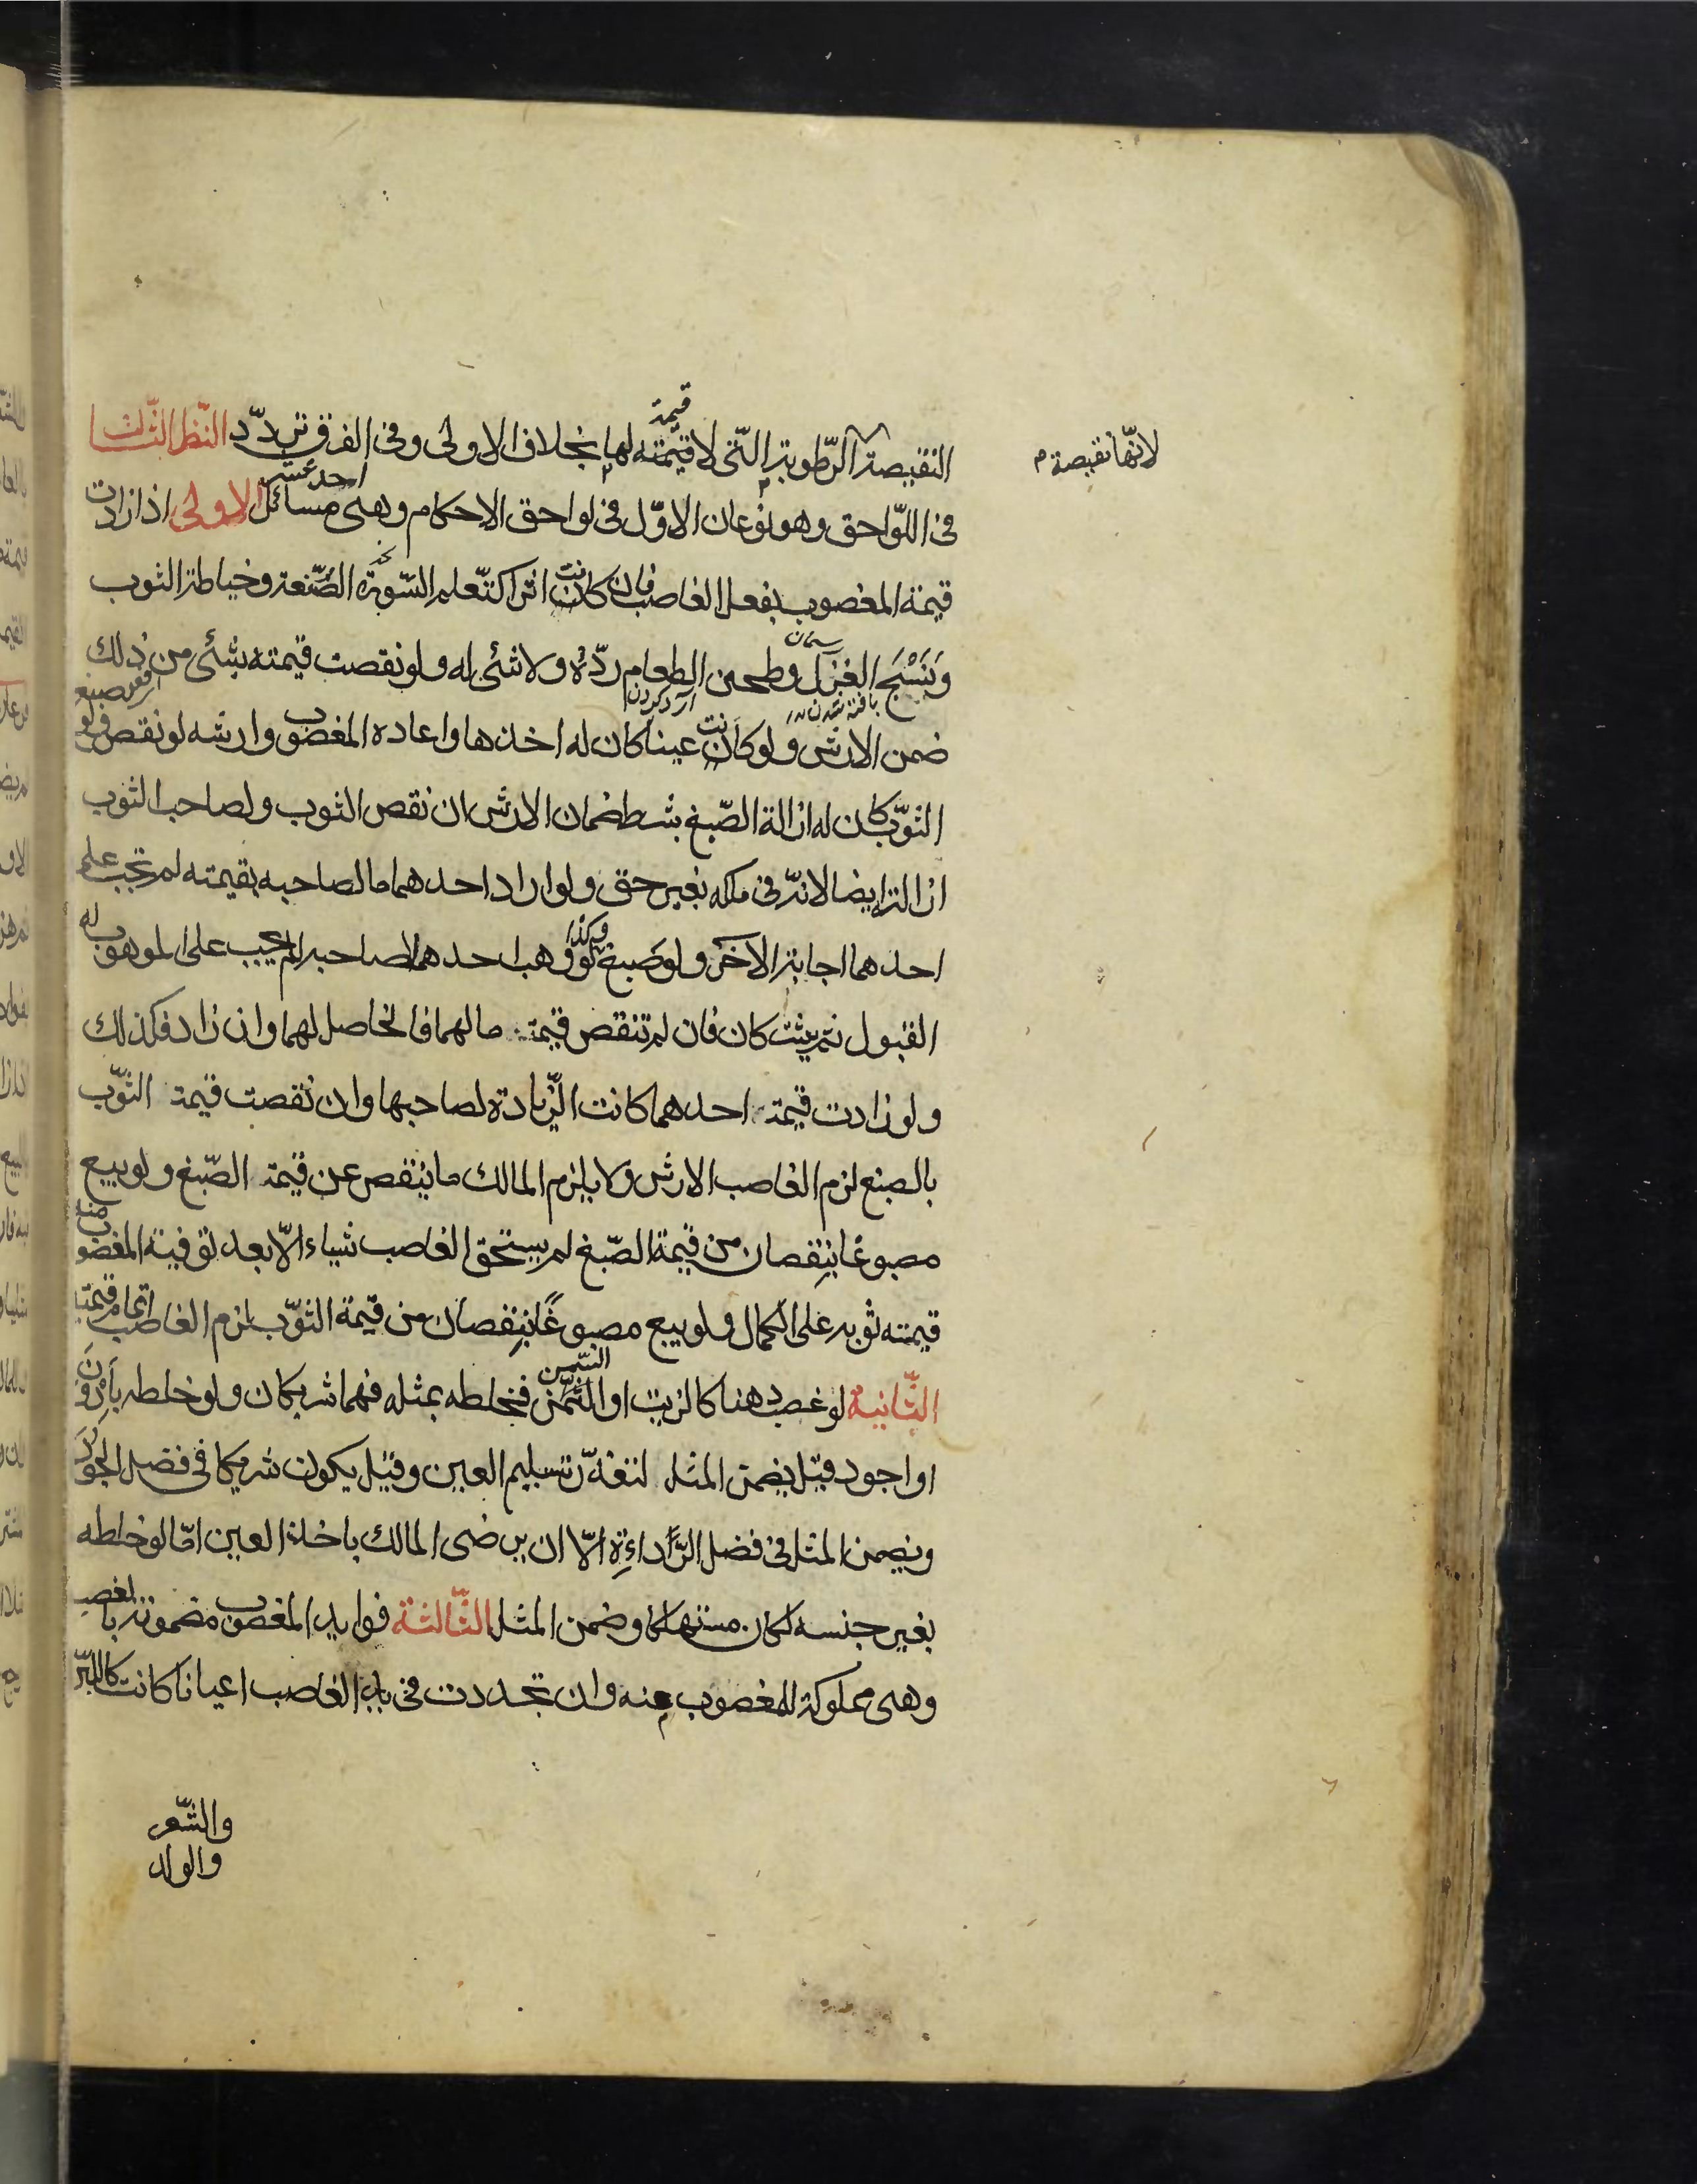 لانها نقيصة م
النقيصة الرّطوبة الّتى لا قيمته لها بخلاف الاولى وفى الفرق تردّد النّظر الثّالث
قيمة
فى اللّواحق وهو نوعان الاوّل فى لواحق الاحكام وهى مسائل الاولى اذا زادت
احد عشر
قيمة المغصوب بفعل الغاصب فان كانت اثرا كتّعلم الصّنعة وخياطة الثوب
وَنَسْجَ الغزل وطحن الطعام ردّه ولا شئى له ولو نقصت قيمته بشئى من ذلك
ريسمان
بافته شدن
آرد كردن
ضمن الارش ولو كانت عينا كان له اخذها واعادة المغصوب وارشه لو نقص ولو صبغ
الثوّب كان له ازالة الصّبغ بشرط ضمان الارش ان نقص الثوب ولصاحب الثوب
ازالته ايضا لانّه فى ملكه بغير حق ولو اراد احدهما ما لصاحبه بقيمته لم تجب على
احدهما اجابة الاخر ولو صبغ لو وهب احدهما لصاحبه لم يجب على الموهوب له
وكذا
القبول ثم يشتركان فان لم تنقص قيمة مالهما فالحاصل لهما وان زاد فكذلك
ولو زادت قيمة احدهما كانت الزّيادة لصاحبها وان نقصت قيمة الثوّب
بالصبغ لزم الغاصب الارش ولا يلزم المالك ما ينقص عن قيمة الصّبغ ولو بيع
مصبوغا بنقصان من قيمة الصّبغ لم يستحق الغاصب شياء الّا بعد توفية المغصوب منه
قيمته ثوبه على الكمال ولو بيع مصبوغًا بنقصان من قيمة الثوّب لزم الغاصب اتمام قيمته
الثّانية لو غصب دهنا كالزيت او السّمن فخلطه بمثله فهما شريكان ولو خلطه بادون
السّمن
او اجود قيل يضمن المثل لتعذّر تسليم العين وقيل يكون شريكا فى فضل الجودة
ويضمن المثل فى فضل الرّداءة الّا ان يرضى المالك باخذ العين امّا لو خلطه
بغير جنسه لكان مستهلكا وضمن المثل الثّالثة فوايد المغصوب مضمونة بالغصب
وهى مملوكة للمغصوب منه وان تجددت فى يد الغاصب اعيانا كانت كاللبن
والشّعر
والولد